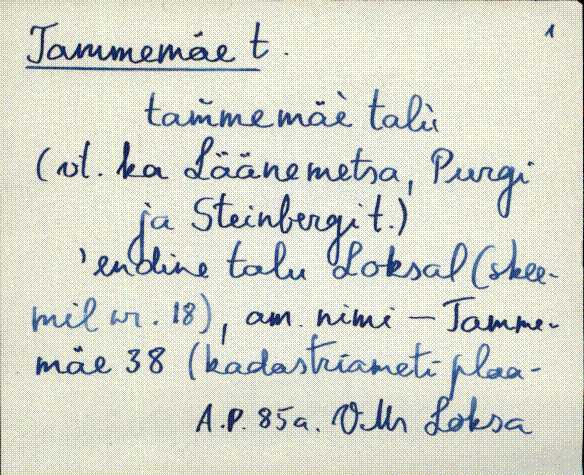 Tammemäe t. 1
tam̀memäè talù
(vt. ka Läänemetsa, Purgi
ja Steinbergi t.)
'endine talu Loksal (skee-
mil nr. 18), am. nimi – Tamme-
mäe 38 (kadastriameti plaa-
A.P. 85a. V.Mr Loksa